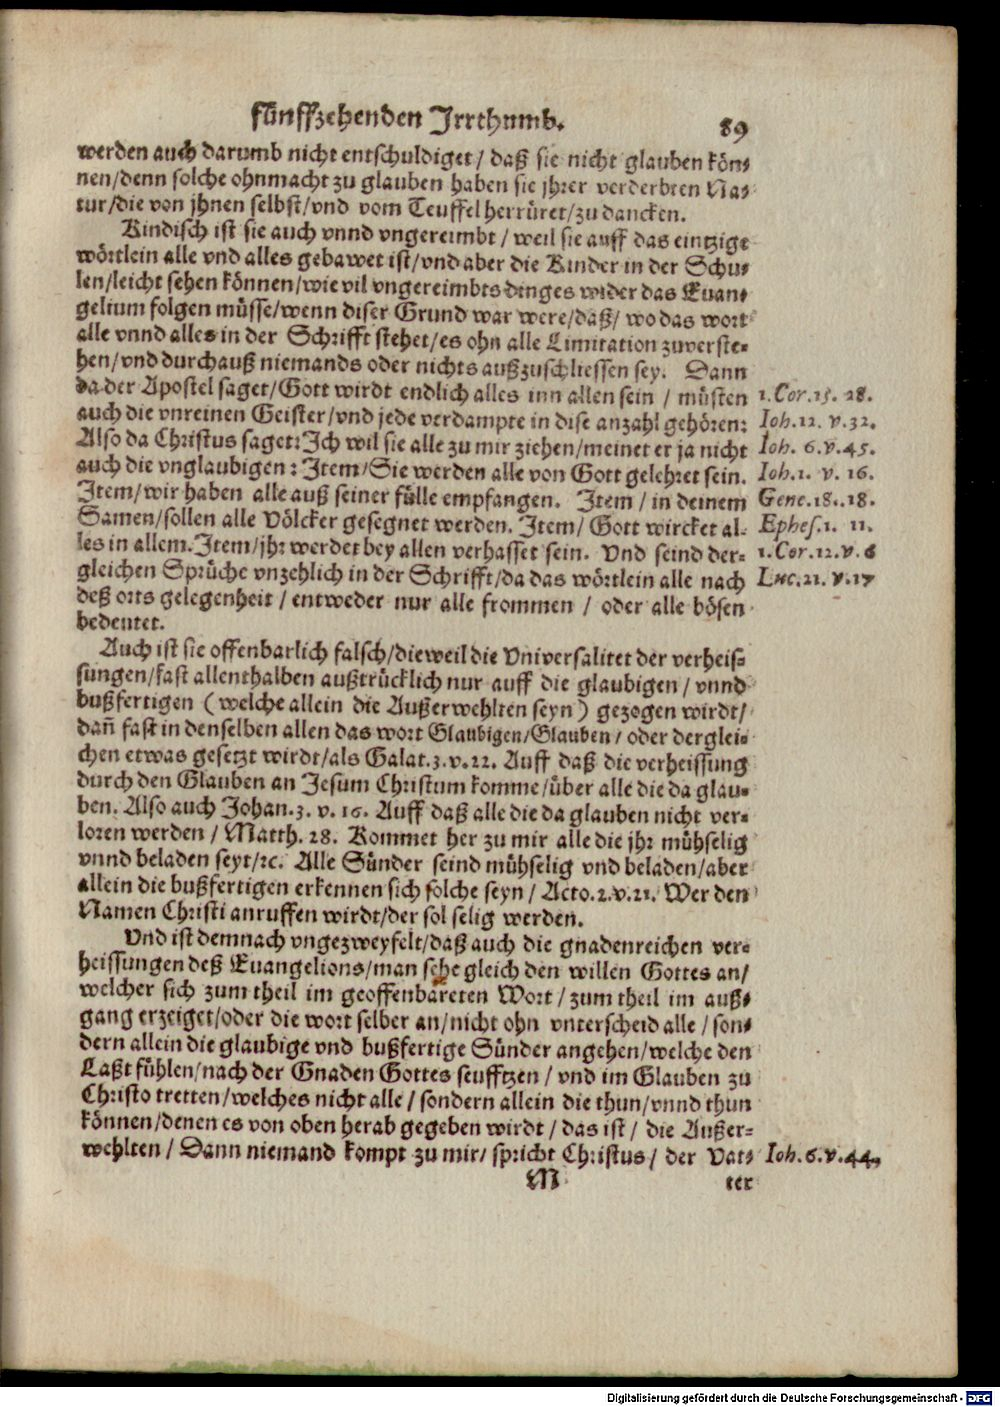 fünffzehenden Irrthumb.
89
werden auch darumb nicht entschuldiget / daß sie nicht glauben kön-
nen/denn solche ohnmacht zu glauben haben sie jhrer verderbten Na-
tur/die von jhnen selbst/vnd vom Teuffel herrüret/zu dancken.
Kindisch ist sie auch vnnd vngereimbt / weil sie auff das eintzige
wörtlein alle vnd alles gebawet ist/vnd aber die Kinder in der Schu-
len/leicht sehen können/wie vil vngereimbts dinges wider das Euan-
gelium folgen müsse/wenn diser Grund war were/daß/ wo das wort
alle vnnd alles in der Schrifft stehet/es ohn alle Limitation zuverste-
hen/vnd durchauß niemands oder nichts außzuschliessen sey. Dann
da der Apostel saget/Gott wirdt endlich alles inn allen sein / müsten
1. Cor. 15. 28.
auch die vnreinen Geister/vnd jede verdampte in dise anzahl gehören:
Ioh. 12. v. 32.
Also da Christus saget: Ich wil sie alle zu mir ziehen/meinet er ja nicht
Ioh. 6. v. 45.
auch die vnglaubigen: Item/Sie werden alle von Gott gelehret sein.
Ioh. 1. v. 16.
Item/wir haben alle auß seiner fülle empfangen. Item / in deinem
Gene. 18. 18.
Samen/sollen alle Völcker gesegnet werden. Item/ Gott wircket al-
Ephes. 1. 11.
les in allem. Item/jhr werdet bey allen verhasset sein. Vnd seind der-
1. Cor. 12. v. 6
gleichen Sprüche vnzehlich in der Schrifft/da das wörtlein alle nach
Luc. 21. v. 17
deß orts gelegenheit / entweder nur alle frommen / oder alle bösen
bedeutet.
Auch ist sie offenbarlich falsch/dieweil die Vniversalitet der verheis-
sungen/fast allenthalben außtrücklich nur auff die glaubigen / vnnd
bußfertigen (welche allein die Außerwehlten seyn) gezogen wirdt/
dañ fast in denselben allen das wort Glaubigen/Glauben/ oder derglei-
chen etwas gesetzt wirdt/als Galat. 3. v. 22. Auff daß die verheissung
durch den Glauben an Jesum Christum komme/über alle die da glau-
ben. Also auch Johan. 3. v. 16. Auff daß alle die da glauben nicht ver-
loren werden / Matth. 28. Kommet her zu mir alle die jhr mühselig
vnnd beladen seyt/ꝛc. Alle Sünder seind mühselig vnd beladen/aber
allein die bußfertigen erkennen sich solche seyn / Acto. 2. v. 21. Wer den
Namen Christi anruffen wirdt/der sol selig werden.
Vnd ist demnach vngezweyfelt/daß auch die gnadenreichen ver-
heissungen deß Euangelions/man sehe gleich den willen Gottes an/
welcher sich zum theil im geoffenbareten Wort / zum theil im auß-
gang erzeiget/oder die wort selber an/nicht ohn vnterscheid alle / son-
dern allein die glaubige vnd bußfertige Sünder angehen/welche den
Laßt fühlen/nach der Gnaden Gottes seufftzen / vnd im Glauben zu
Christo tretten/welches nicht alle / sondern allein die thun/vnnd thun
können/denen es von oben herab gegeben wirdt / das ist / die Außer-
wehlten / Dann niemand kompt zu mir/ spricht Christus / der Vat-
Ioh. 6. v. 44.
M
ter
Digitalisierung gefördert durch die Deutsche Forschungsgemeinschaft - DFG